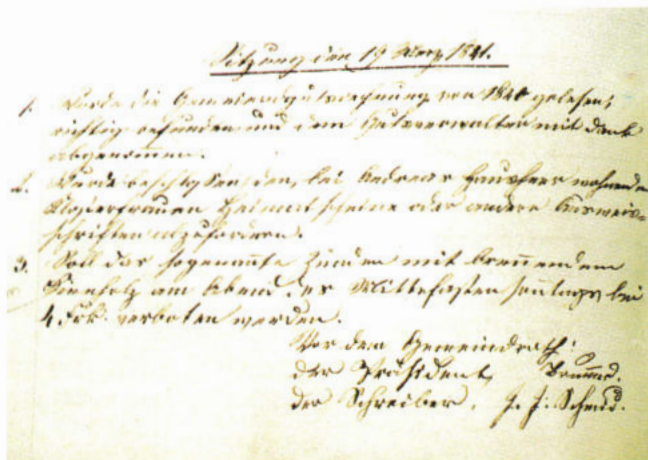 Sitzung den 19 Merz 1841.
1. Wurde die Gemeindgutsrechnung von 1840 gelesen,
richtig erfunden und dem Gutsverwalter mit Dank
abgenommen.
2. Wurde beschlossen, den, bei Andreas Hausheer wohnenden
Klosterfrauen Heimatscheine oder andere Ausweis=
schriften abzufordern.
3. Soll das sogenannte Zünden mit brennendem
Kienholz am Abend des Mittefasten sonntags bei
4 Frk. verboten werden.
Vor dem Gemeindrath:
der Präsident,
der Schreiber, J. J. Schmid.